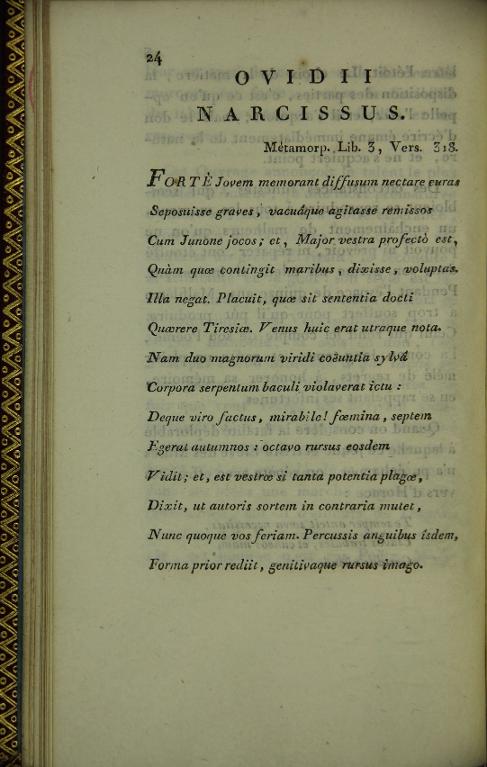 24
OVIDII
NARCISSUS.
Métamorp. Lib. 3, Vers. 318.
FORTÈ Jovem memorant diffusum nectare curas
Seposuisse graves, vacuáque agitasse remissos
Cum Junone jocos; et, Major vestra profectò est,
Quàm quæ contingit maribus, dixisse, voluptas.
Illa negat. Placuit, quæ sit sententia docti
Quærere Tiresiæ. Venus huic erat utraque nota.
Nam duo magnorum viridi coëuntia sylvâ
Corpora serpentum baculi violaverat ictu:
Deque viro factus, mirabile! fœmina, septem
Egerat autumnos: octavo rursus eosdem
Vidit; et, est vestræ si tanta potentia plagæ,
Dixit, ut autoris sortem in contraria mutet,
Nunc quoque vos feriam. Percussis anguibus îsdem,
Forma prior rediit, genitivaque rursus imago.